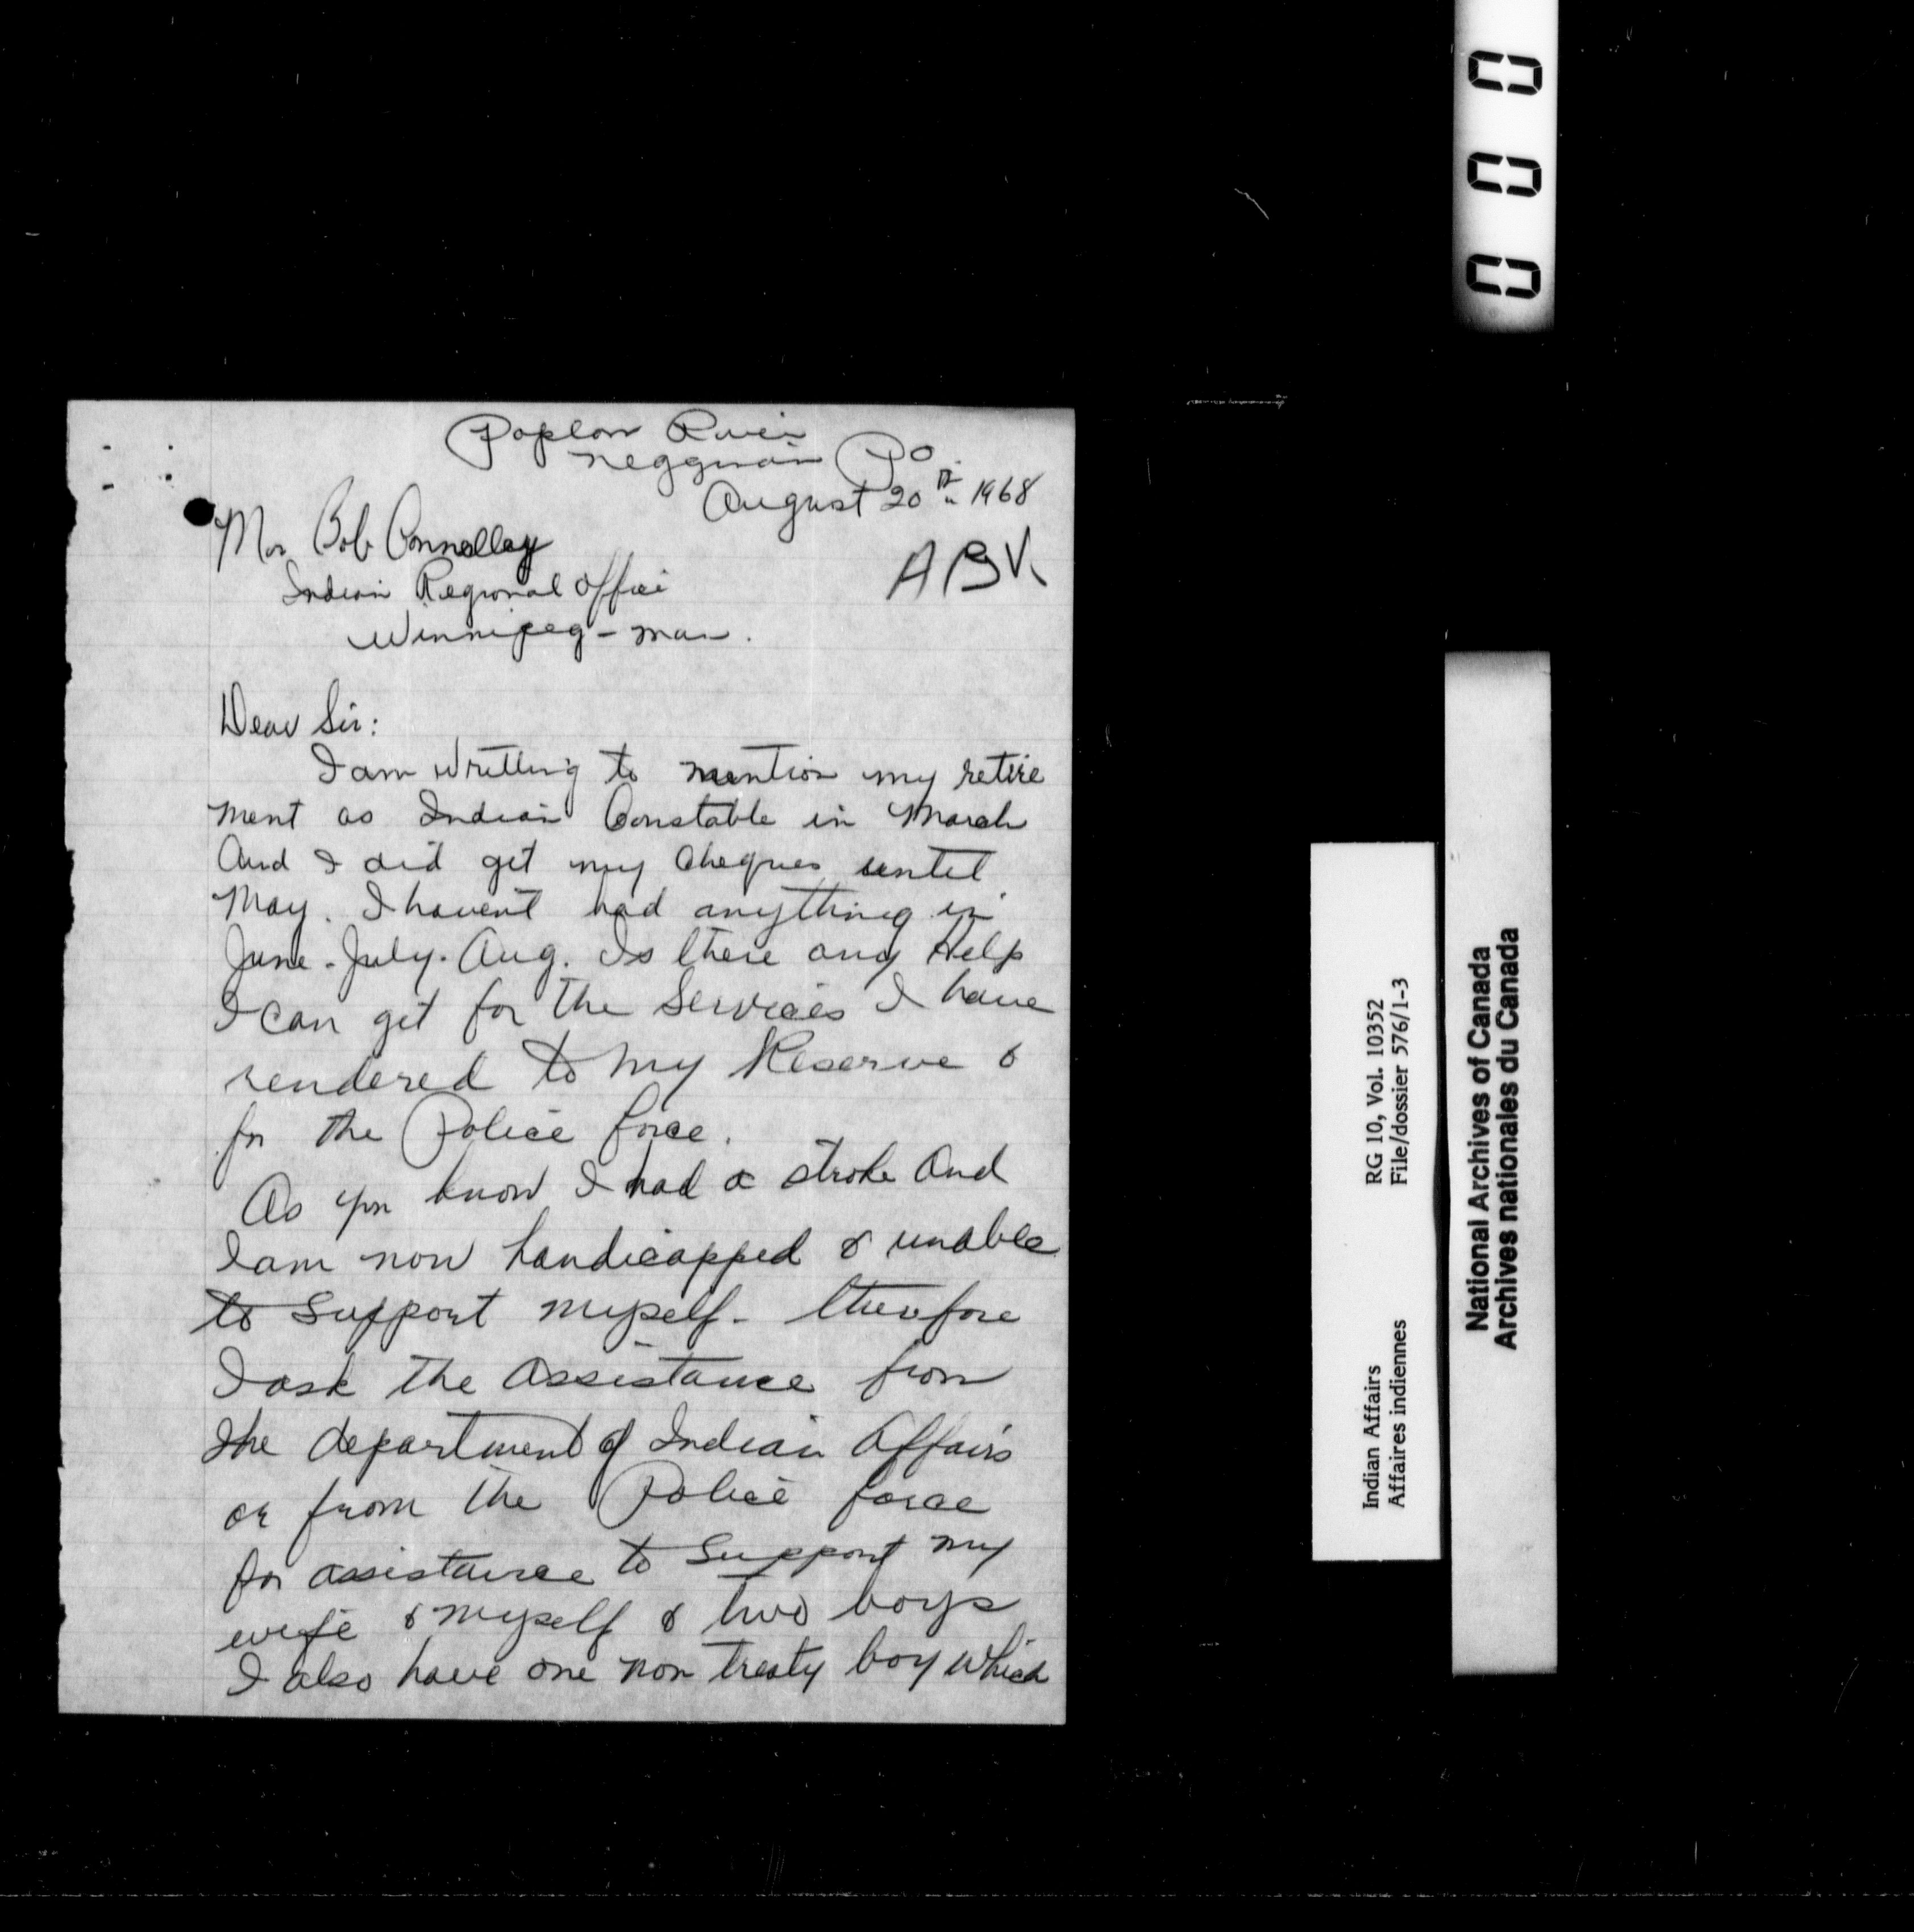 Poplar River
Negginan P O
August 20th 1968
Mr Bob Connelley
Indian Regional Office
Winnipeg - man.
A B V
Dear Sir:
I am writting to mention my retire
ment as Indian Constable in March
And I did get my Cheques until
May. I havent had anything in
June - July. Aug. Is there any Help
I can get for the Services I have
rendered to my Reserve &
for the Police force.
As you know I had a stroke And
I am now handicapped & unable
to Support myself - therefore
I ask the Assistance from
the department of Indian Affairs
or from the Police force
for assistance to Support my
wife & myself & two boys
I also have one non treaty boy which
0 0 0
Indian Affairs RG 10, Vol. 10352
Affaires indiennes File/dossier 576/1-3
National Archives of Canada
Archives nationales du Canada